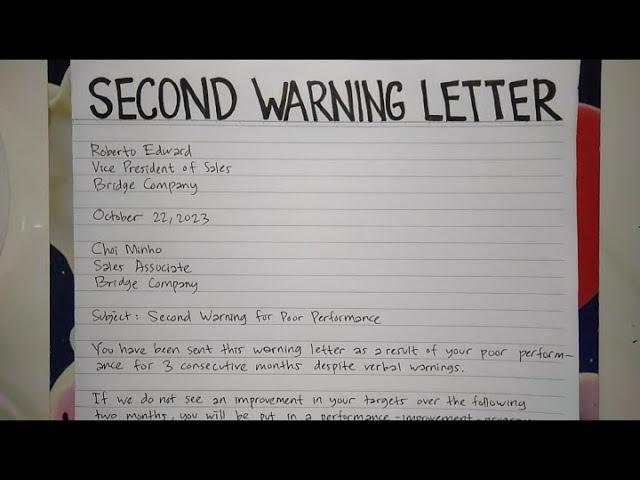 SECOND WARNING LETTER
Roberto Edward
Vice President of Sales
Bridge Company
October 22, 2023
Choi Minho
Sales Associate
Bridge Company
Subject: Second Warning for Poor Performance
You have been sent this warning letter as a result of your poor perform-
ance for 3 consecutive months despite verbal warnings.
If we do not see an improvement in your targets over the following
two months, you will be put in a performance-improvement-program